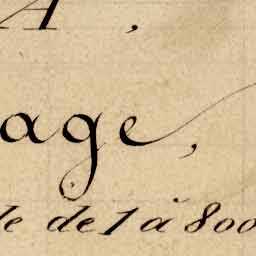 A,
age,
de de 1 à 800